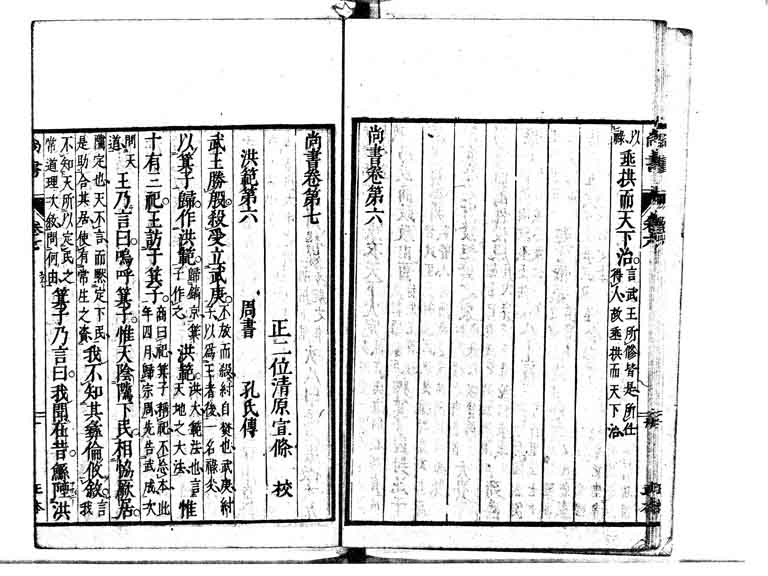 以
祿
垂拱而天下治。言武王所脩皆是所仕
得人故垂拱而天下治
尚書卷第六
尚書卷第七
正二位清原宣條 校
洪範第六 周書 孔氏傳
武王勝殷殺受立武庚。不放而殺紂自焚也武庚紂
子以爲王者後一名祿父
以箕子歸作洪範。歸鎬京箕
子作之
洪範洪大範法也言
天地之大法
惟
十有三祀王訪于箕子商曰祀箕子稱祀不忘本此
年四月歸宗周先告武成次
問天
道
王乃言曰嗚呼箕子惟天陰隲下民相協厥居
隲定也天不言而默定下民
是助合其居使有常生之資
我不知其彝倫攸敘。言我
不知天所以定民之
常道理次敘問何由
箕子乃言曰我聞在昔鯀陻洪
尚書
卷七